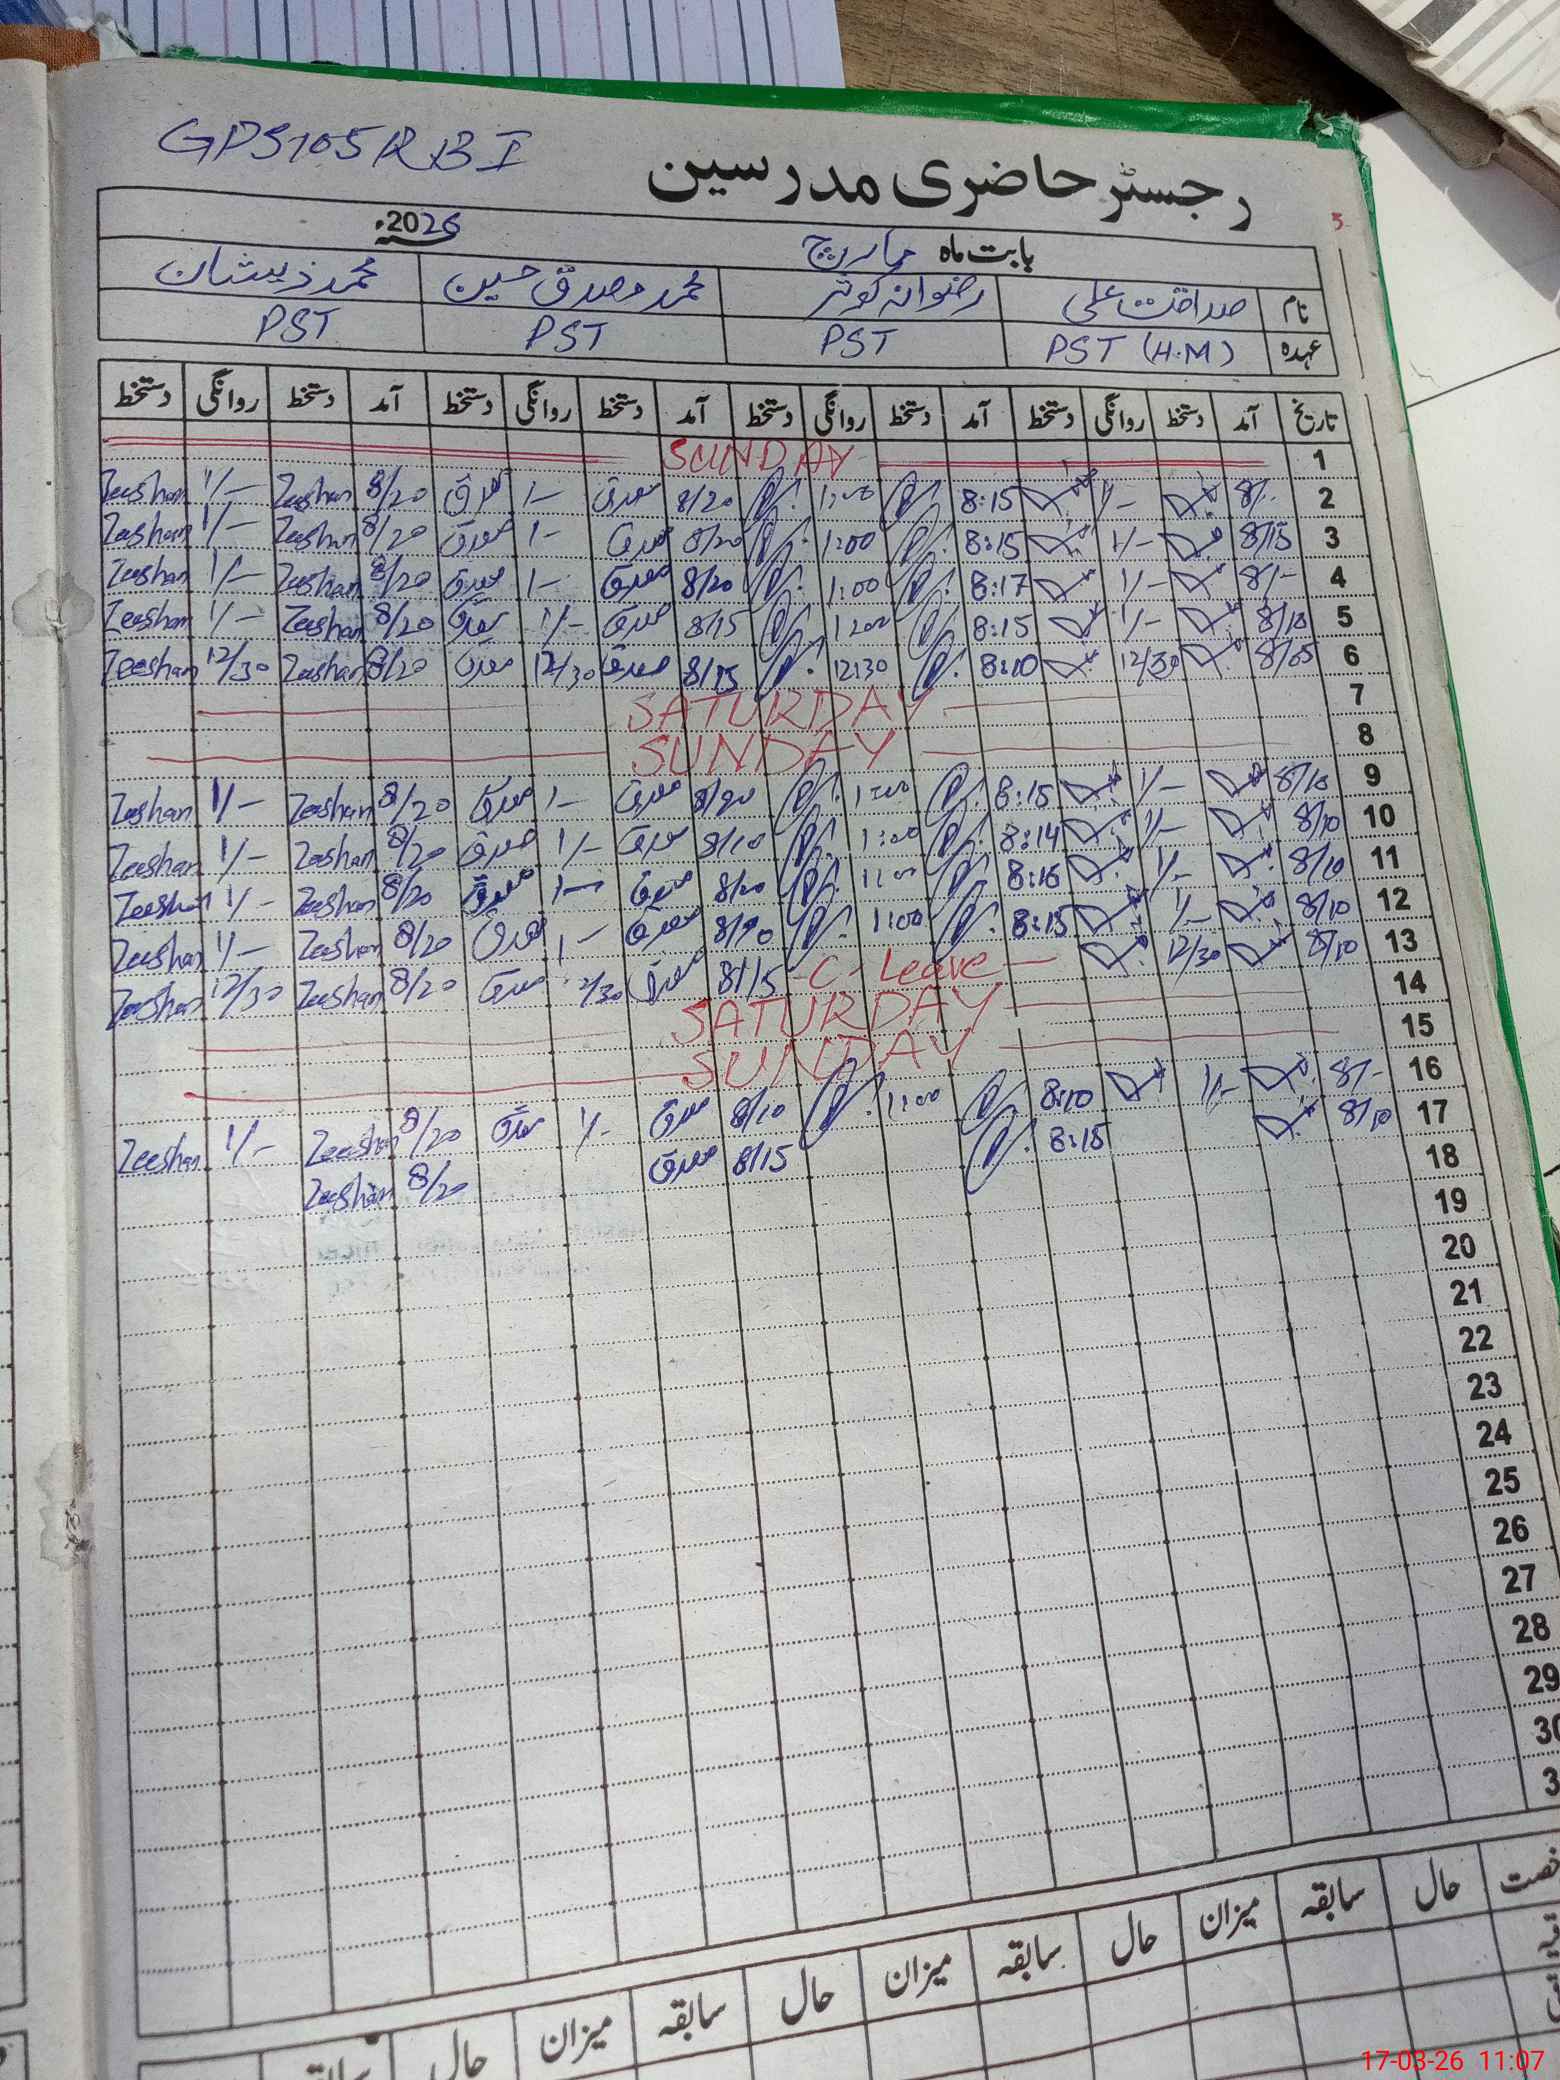 GPS 105 RB I
رجسٹر حاضری مدرسین
بابت ماہ مارچ 2026ء
نام صداقت علی رضوانہ کوثر محمد مصدق حسین محمد ذیشان
عہدہ PST (H.M) PST PST PST
تاریخ آمد دستخط روانگی دستخط آمد دستخط روانگی دستخط آمد دستخط روانگی دستخط آمد دستخط روانگی دستخط
1 SUNDAY
2 8/- 1/- 8:15 1:00 8/20 مصدق 1- مصدق 8/20 Zeeshan 1/- Zeeshan
3 8/15 1/- 8:15 1:00 8/20 مصدق 1- مصدق 8/20 Zeeshan 1/- Zeeshan
4 8/- 1/- 8:17 1:00 8/20 مصدق 1- مصدق 8/20 Zeeshan 1/- Zeeshan
5 8/10 1/- 8:15 1:00 8/15 مصدق 1/- مصدق 8/20 Zeeshan 1/- Zeeshan
6 8/05 12/30 8:10 12:30 8/15 مصدق 12/30 مصدق 8/20 Zeeshan 12/30 Zeeshan
7 SATURDAY
8 SUNDAY
9 8/10 1/- 8:15 1:00 8/20 مصدق 1- مصدق 8/20 Zeeshan 1/- Zeeshan
10 8/10 1/- 8:14 1:00 8/10 مصدق 1/- مصدق 8/20 Zeeshan 1/- Zeeshan
11 8/10 1/- 8:16 1:00 8/20 مصدق 1- مصدق 8/20 Zeeshan 1/- Zeeshan
12 8/10 1/- 8:15 1:00 مصدق 1- مصدق 8/20 Zeeshan 1/- Zeeshan
13 8/10 12/30 C- Leave 8/15 مصدق 12/30 مصدق 8/20 Zeeshan 12/30 Zeeshan
14 SATURDAY
15 SUNDAY
16 8/- 1/- 8:10 1:00 8/10 مصدق 1/- مصدق 8/20 Zeeshan 1/- Zeeshan
17 8/10 8:15 8/15 مصدق 8/20 Zeeshan
18
19
20
21
22
23
24
25
26
27
28
29
30
3
حال سابقہ میزان حال سابقہ میزان حال سابقہ میزان حال
17-03-26 11:07